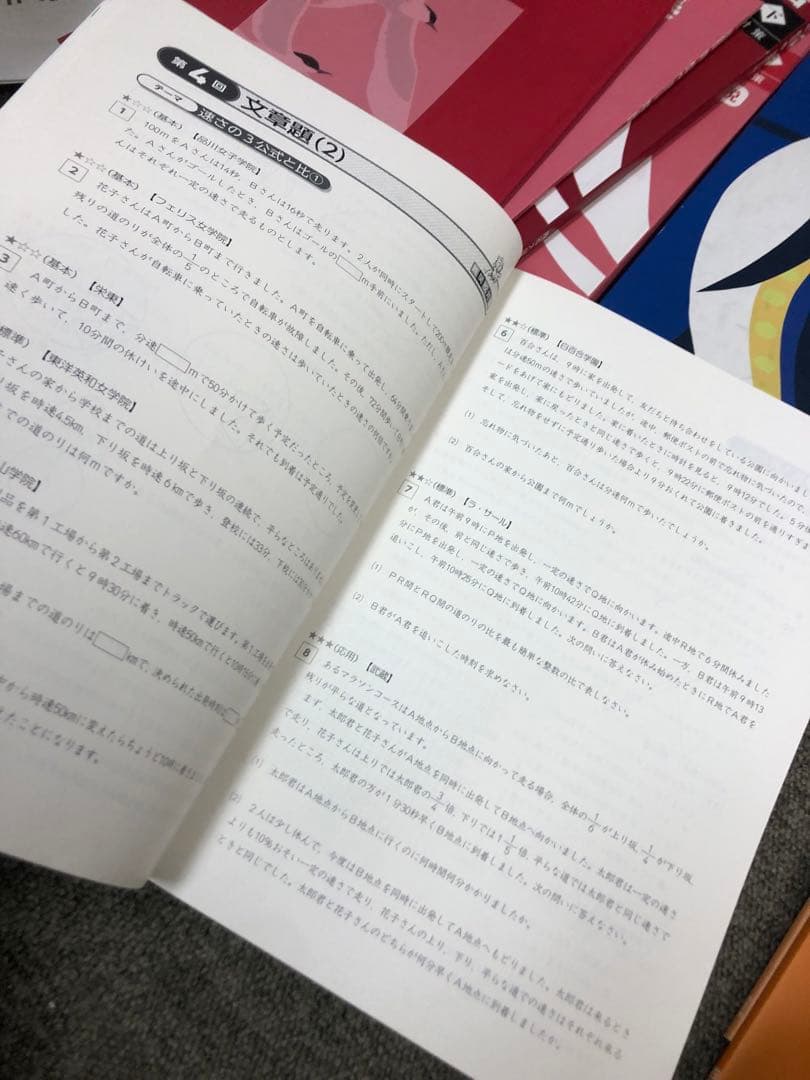 第4回 文章題(2)
テーマ 速さの3公式と比①
★☆☆(基本)【品川女子学院】
1 100mをAさんは14秒、Bさんは16秒で走ります。2人が同時にスタートして200m競走
た。Aさんがゴールしたとき、Bさんはゴールの□m手前にいました。ただし、
んはそれぞれ一定の速さで走るものとします。
★☆☆(基本)【フェリス女学院】
2 花子さんはA町からB町まで行きました。A町を自転車に乗って出発し、
残りの道のりが全体の1/5のところで自転車が故障しました。その後、72分間歩いて
した。花子さんが自転車に乗っていたときの速さは歩いていたときの速さの何倍ですか
★☆☆(基本)【栄東】
3 A町からB町まで、分速□mで50分かけて歩く予定だったところ、予定を変更
速く歩いて、10分間の休けいを途中にしました。それでも到着は予定通りでした。
標準)【東洋英和女学院】
さんの家から学校までの道は上り坂と下り坂の連続で、平らなところはありません
り坂を時速4.5km、下り坂を時速6kmで歩き、登校には33分、下校には
での道のりは何mですか。
山学院】
品を第1工場から第2工場までトラックで運びます。第1工場を
速60kmで行くと9時30分に着き、時速50kmで行くと10時
場までの道のりは□kmで、決められた出発時刻は□
から時速50kmに変えたらちょうど10時に着き
たことになります。
★★☆(標準)【白百合学園】
6 百合さんは、9時に家を出発して、友だちと待ち合わせをしている公園に向かいま
は分速50mの速さで歩いていましたが、途中、郵便ポストの前で忘れ物に気づいたので、
ードをあげて家にもどりました。家に着いたときに時計を見ると、9時12分でした。5分後
家を出発し、家に戻ったときと同じ速さで歩くと、9時22分に郵便ポストの前を通りすぎま
そして、忘れ物をせずに予定通り歩いた場合より9分おくれて公園に着きました。
(1) 忘れ物に気づいたあと、百合さんは分速何mで歩いたでしょうか。
(2) 百合さんの家から公園まで何mでしょうか。
★★☆(標準)【ラ・サール】
7 A君は午前9時にP地を出発し、一定の速さでQ地に向かいます。途中R地でも分間休みました
が、その後、前と同じ速さで歩き、午前10時42分にQ地に到着しました。一方、B君は午前9時13
分にP地を出発し、一定の速さでQ地に向かいます。B君はA君が休み始めたときにR地でA君を
追いこし、午前10時25分にQ地に到着しました。次の問いに答えなさい。
(1) PR間とRQ間の道のりの比を最も簡単な整数の比で表しなさい。
(2) B君がA君を追いこした時刻を求めなさい。
★★★(応用)【武蔵】
8 あるマラソンコースはA地点からB地点に向かって走る場合、全体の1/6が上り坂、1/4が下り坂、
残りが平らな道となっています。
まず、太郎君と花子さんがA地点を同時に出発してB地点へ向かいました。太郎君は一定の速さ
で走り、花子さんは上りでは太郎君の3/4倍、下りでは1 1/5倍、平らな道では太郎君と同じ速さで
走ったところ、太郎君の方が1分30秒早くB地点に到着しました。次の問いに答えなさい。
(1) 太郎君はA地点からB地点に行くのに何時間何分かかりましたか。
(2) 2人は少し休んで、今度はB地点を同時に出発してA地点へもどりました。太郎君は来るとき
よりも10%おそい一定の速さで走り、花子さんの上り、下り、平らな道での速さはそれぞれ来る
ときと同じでした。太郎君と花子さんのどちらが何分早くA地点に到着しましたか。